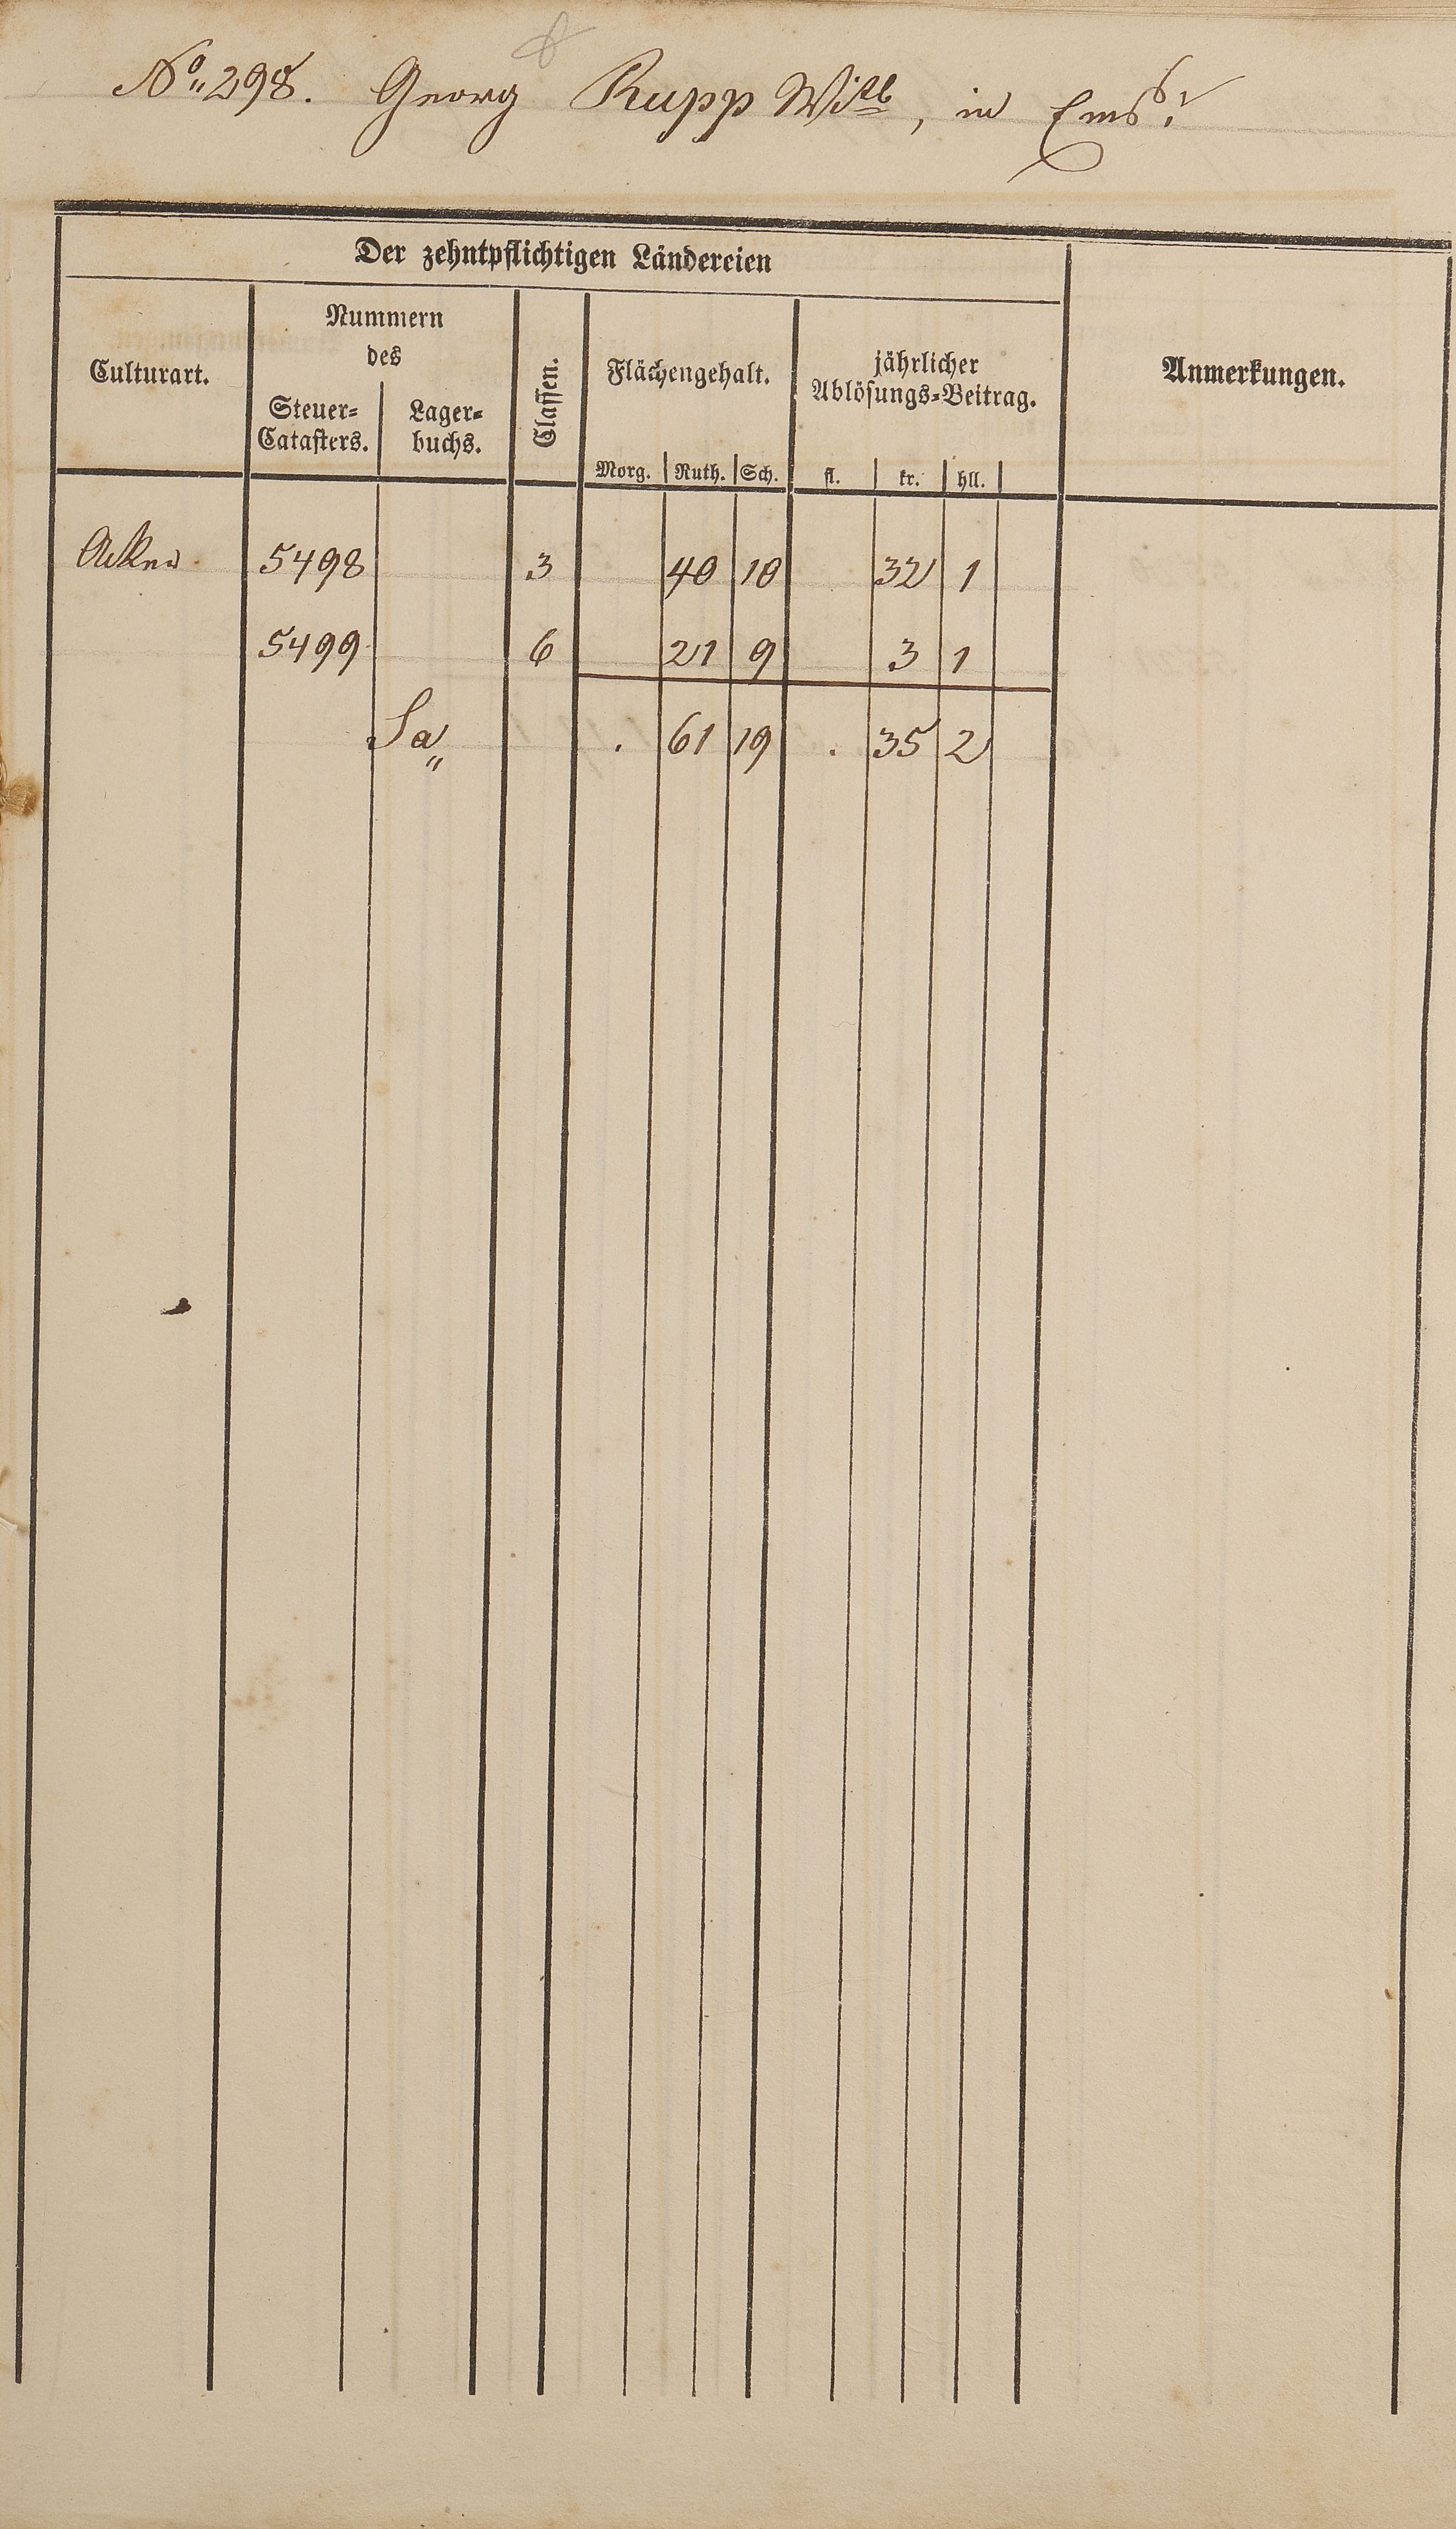 No. 298. Georg Rupp Witb, in Ems.
Der zehntpflichtigen Ländereien
Culturart. Nummern des Classen. Flächengehalt. jährlicher Ablösungs-Beitrag. Anmerkungen.
Steuer-Catasters. Lager-buchs. Morg. Ruth. Sch. fl. kr. hll.
Acker 5498 3 40 10 32 1
5499 6 21 9 3 1
Sa . 61 19 . 35 2